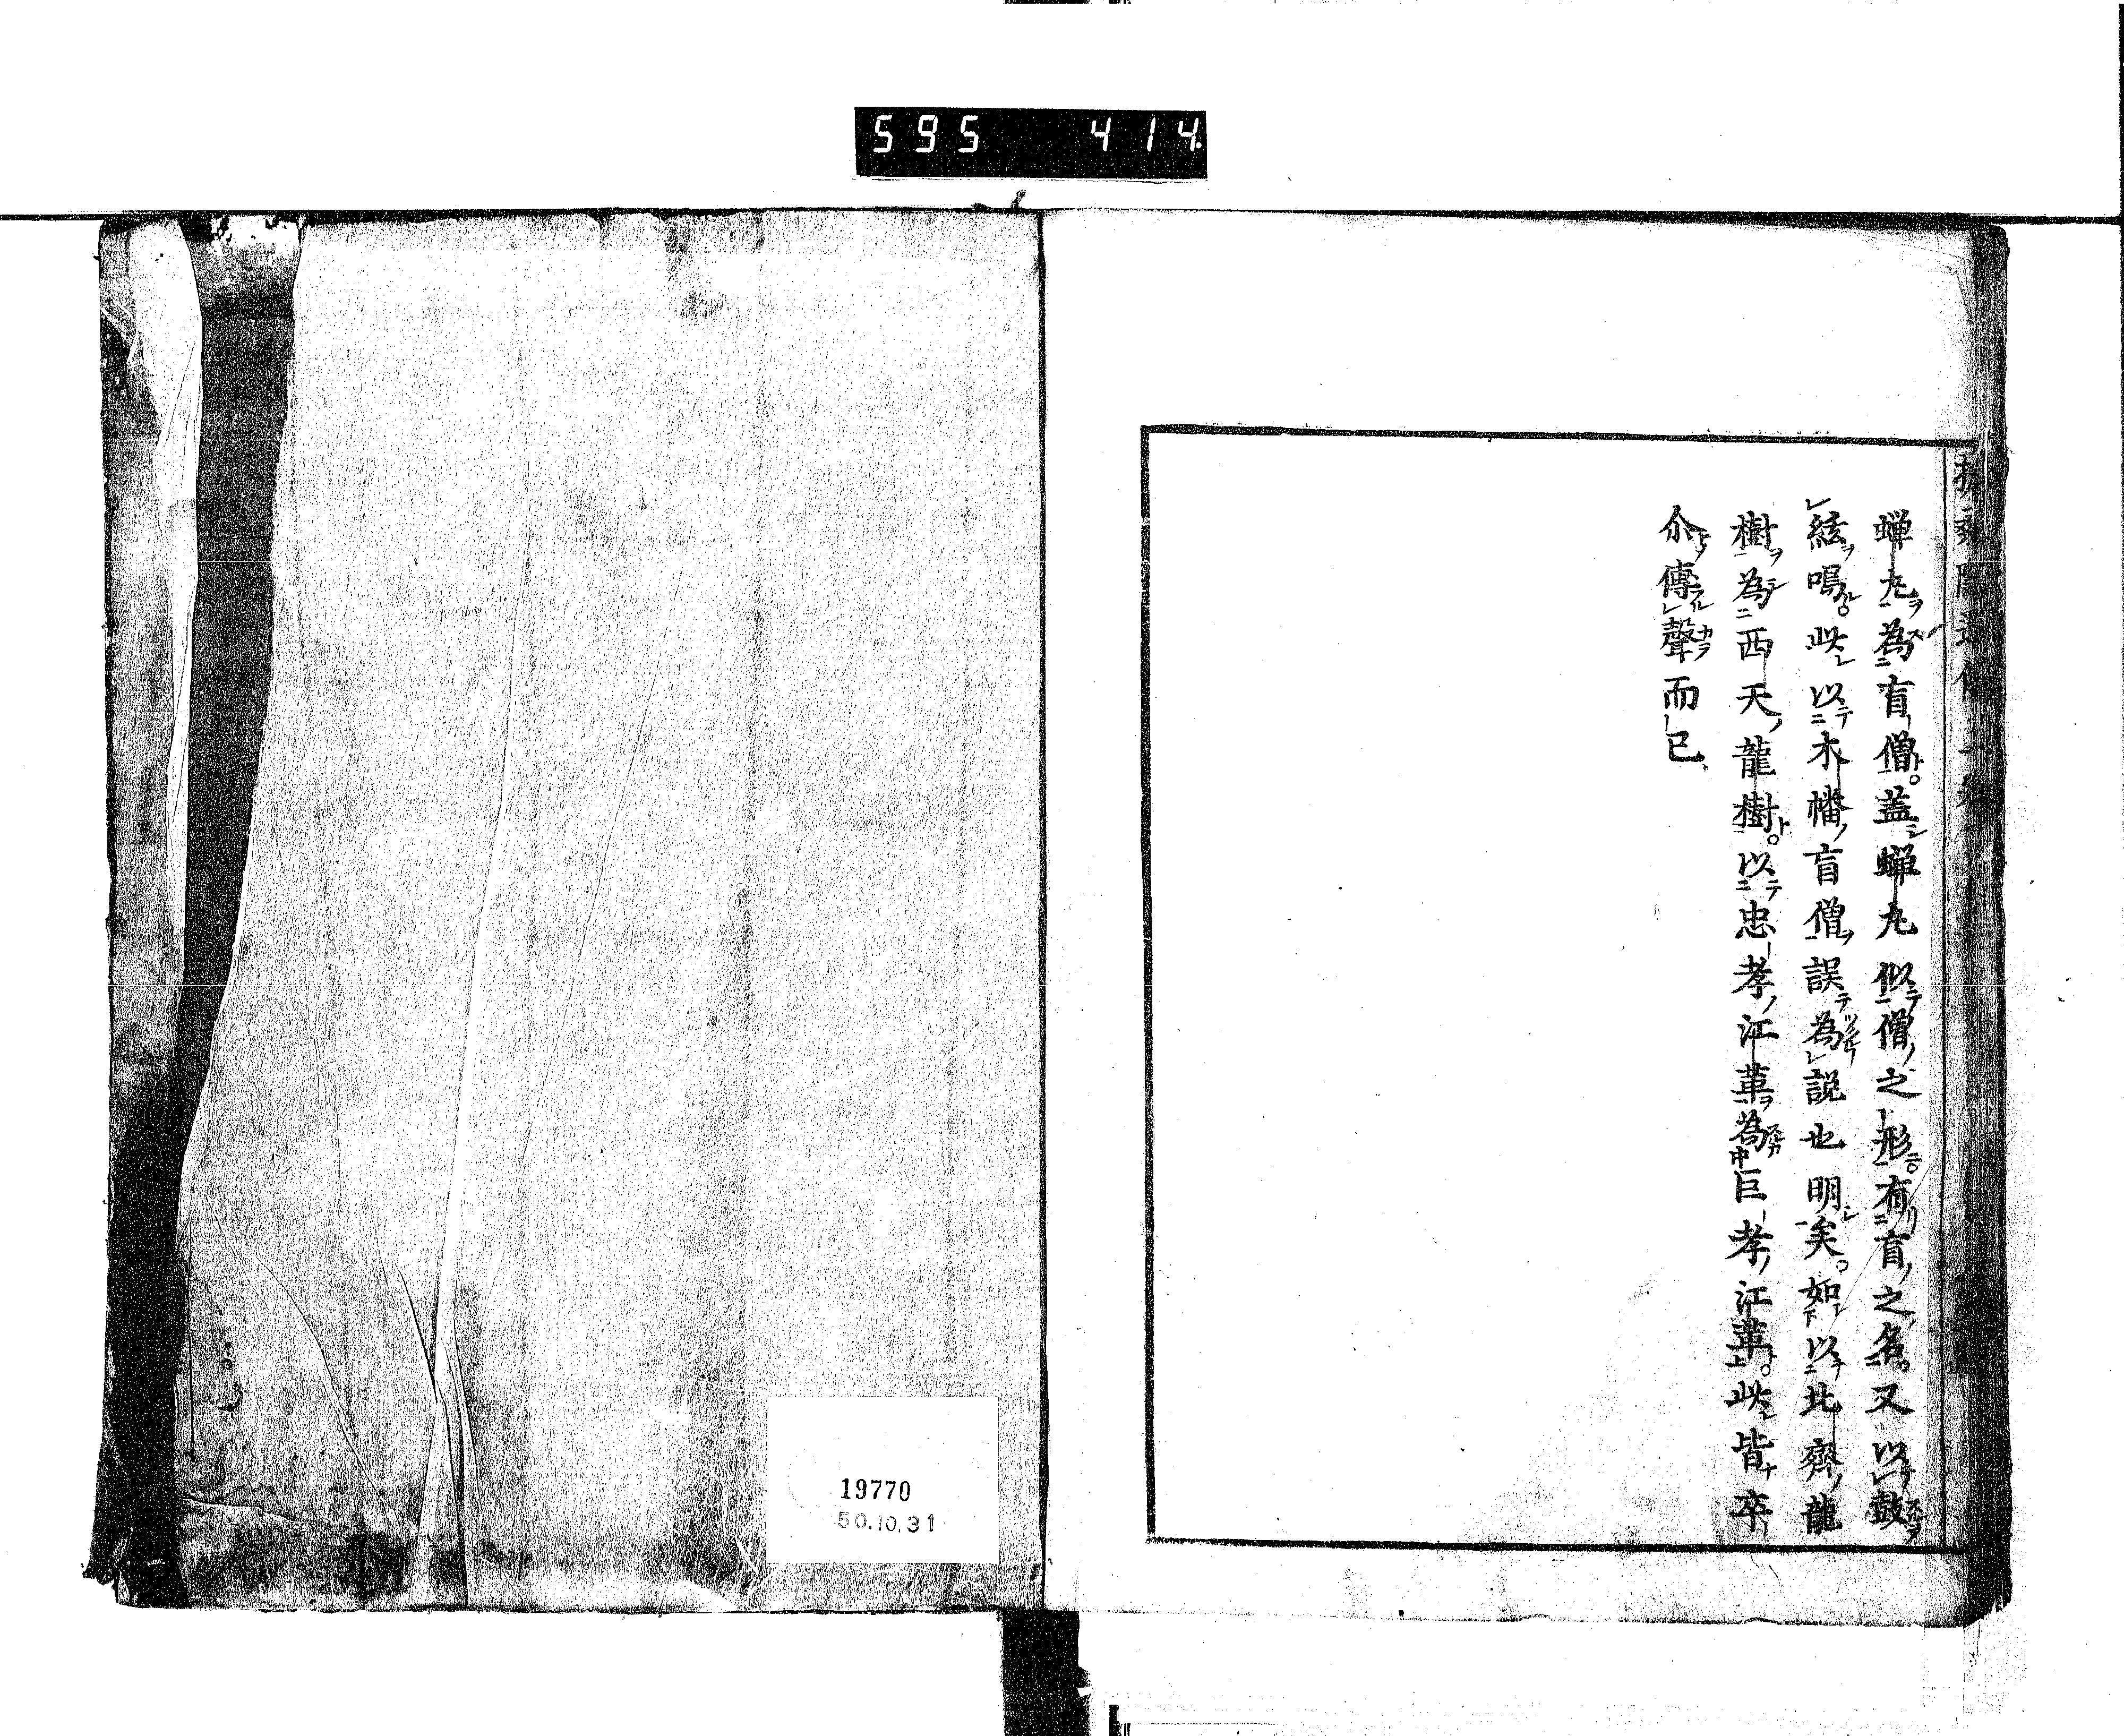 595 414
蟬丸ヲ為盲僧ト。蓋シ蟬丸似テ僧ノ之形ニ。有リ盲ノ之名。又以テ鼓
絃ヲ鳴ル。此レ以テ木幡ノ盲僧ヲ誤テ為説也明シ矣。如シ以テ北齊ノ龍
樹ヲ為シ西天ノ龍樹ト。以テ忠孝ノ江革ヲ為巨孝ノ江革ト。此レ皆ナ卒
尒トノ傳ル聲カヲ而已
19770
50.10.31